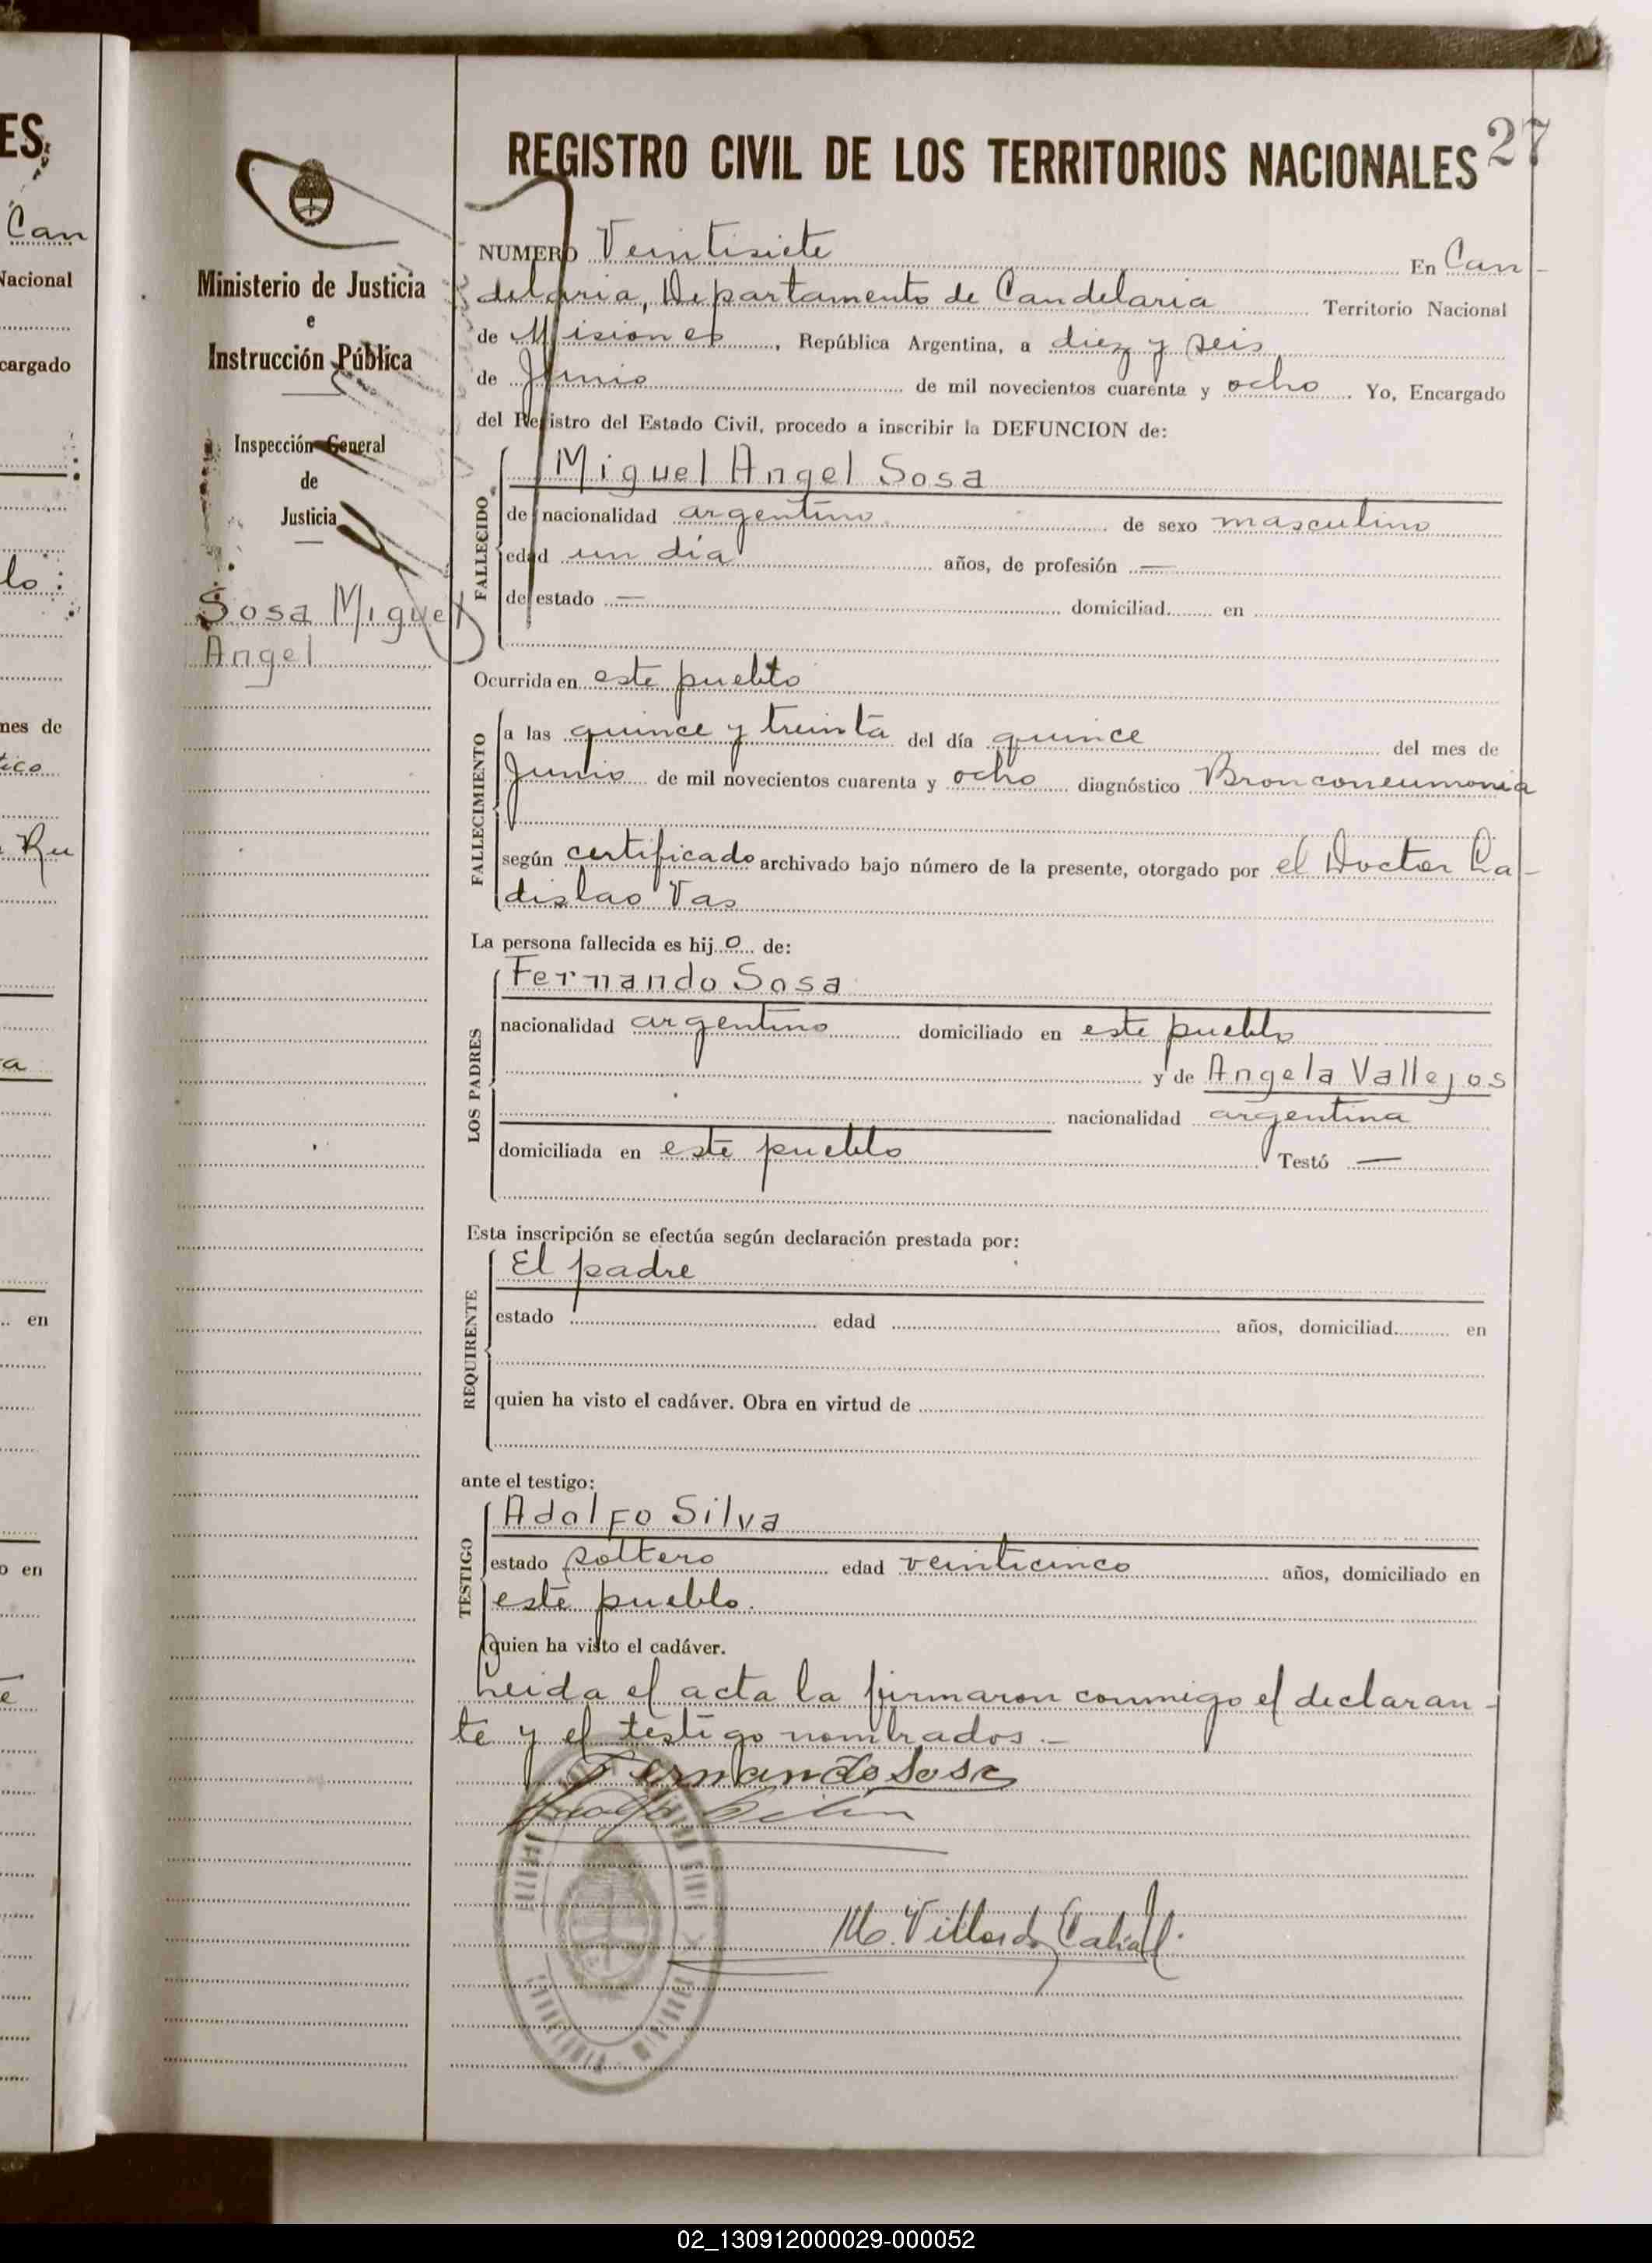 ES
Can
Nacional
cargado
lo
nes de
tico
Ru
a
en
o en
e
27
REGISTRO CIVIL DE LOS TERRITORIOS NACIONALES
Ministerio de Justicia
e
Instrucción Pública
Inspección General
de
Justicia
Sosa Miguel
Angel
NUMERO Veintisiete En Can-
delaria, Departamento de Candelaria Territorio Nacional
de Misiones, República Argentina, a diez y seis
de Junio de mil novecientos cuarenta y ocho. Yo, Encargado
del Registro del Estado Civil, procedo a inscribir la DEFUNCION de:
FALLECIDO
Miguel Angel Sosa
de nacionalidad argentino de sexo masculino
edad un día años, de profesión —
de estado — domiciliad en
Ocurrida en este pueblo
FALLECIMIENTO
a las quince y treinta del día quince del mes de
Junio de mil novecientos cuarenta y ocho diagnóstico Bronconeumonia
según certificado archivado bajo número de la presente, otorgado por el Doctor La-
dislao Vas
La persona fallecida es hijo de:
LOS PADRES
Fernando Sosa
nacionalidad argentino domiciliado en este pueblo
y de Angela Vallejos
nacionalidad argentina
domiciliada en este pueblo Testó —
Esta inscripción se efectúa según declaración prestada por:
REQUIRENTE
El padre
estado edad años, domiciliad en
quien ha visto el cadáver. Obra en virtud de
ante el testigo:
TESTIGO
Adolfo Silva
estado soltero edad veinticinco años, domiciliado en
este pueblo.
quien ha visto el cadáver.
Leida el acta la firmaron conmigo el declaran-
te y el testigo nombrados.—
Fernando Sosa
Adolfo Silva
M. Villordo Cabral
02_130912000029-000052